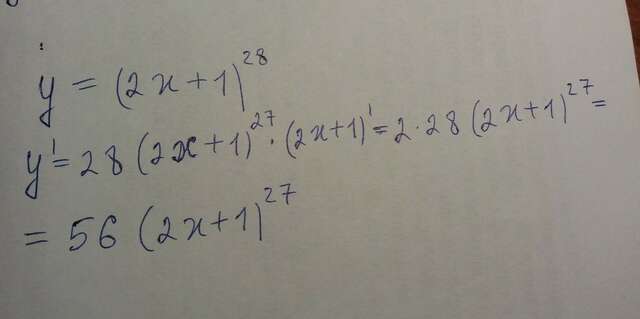 y = (2x+1)^28
y' = 28 (2x+1)^27 · (2x+1)' = 2·28 (2x+1)^27 =
= 56 (2x+1)^27